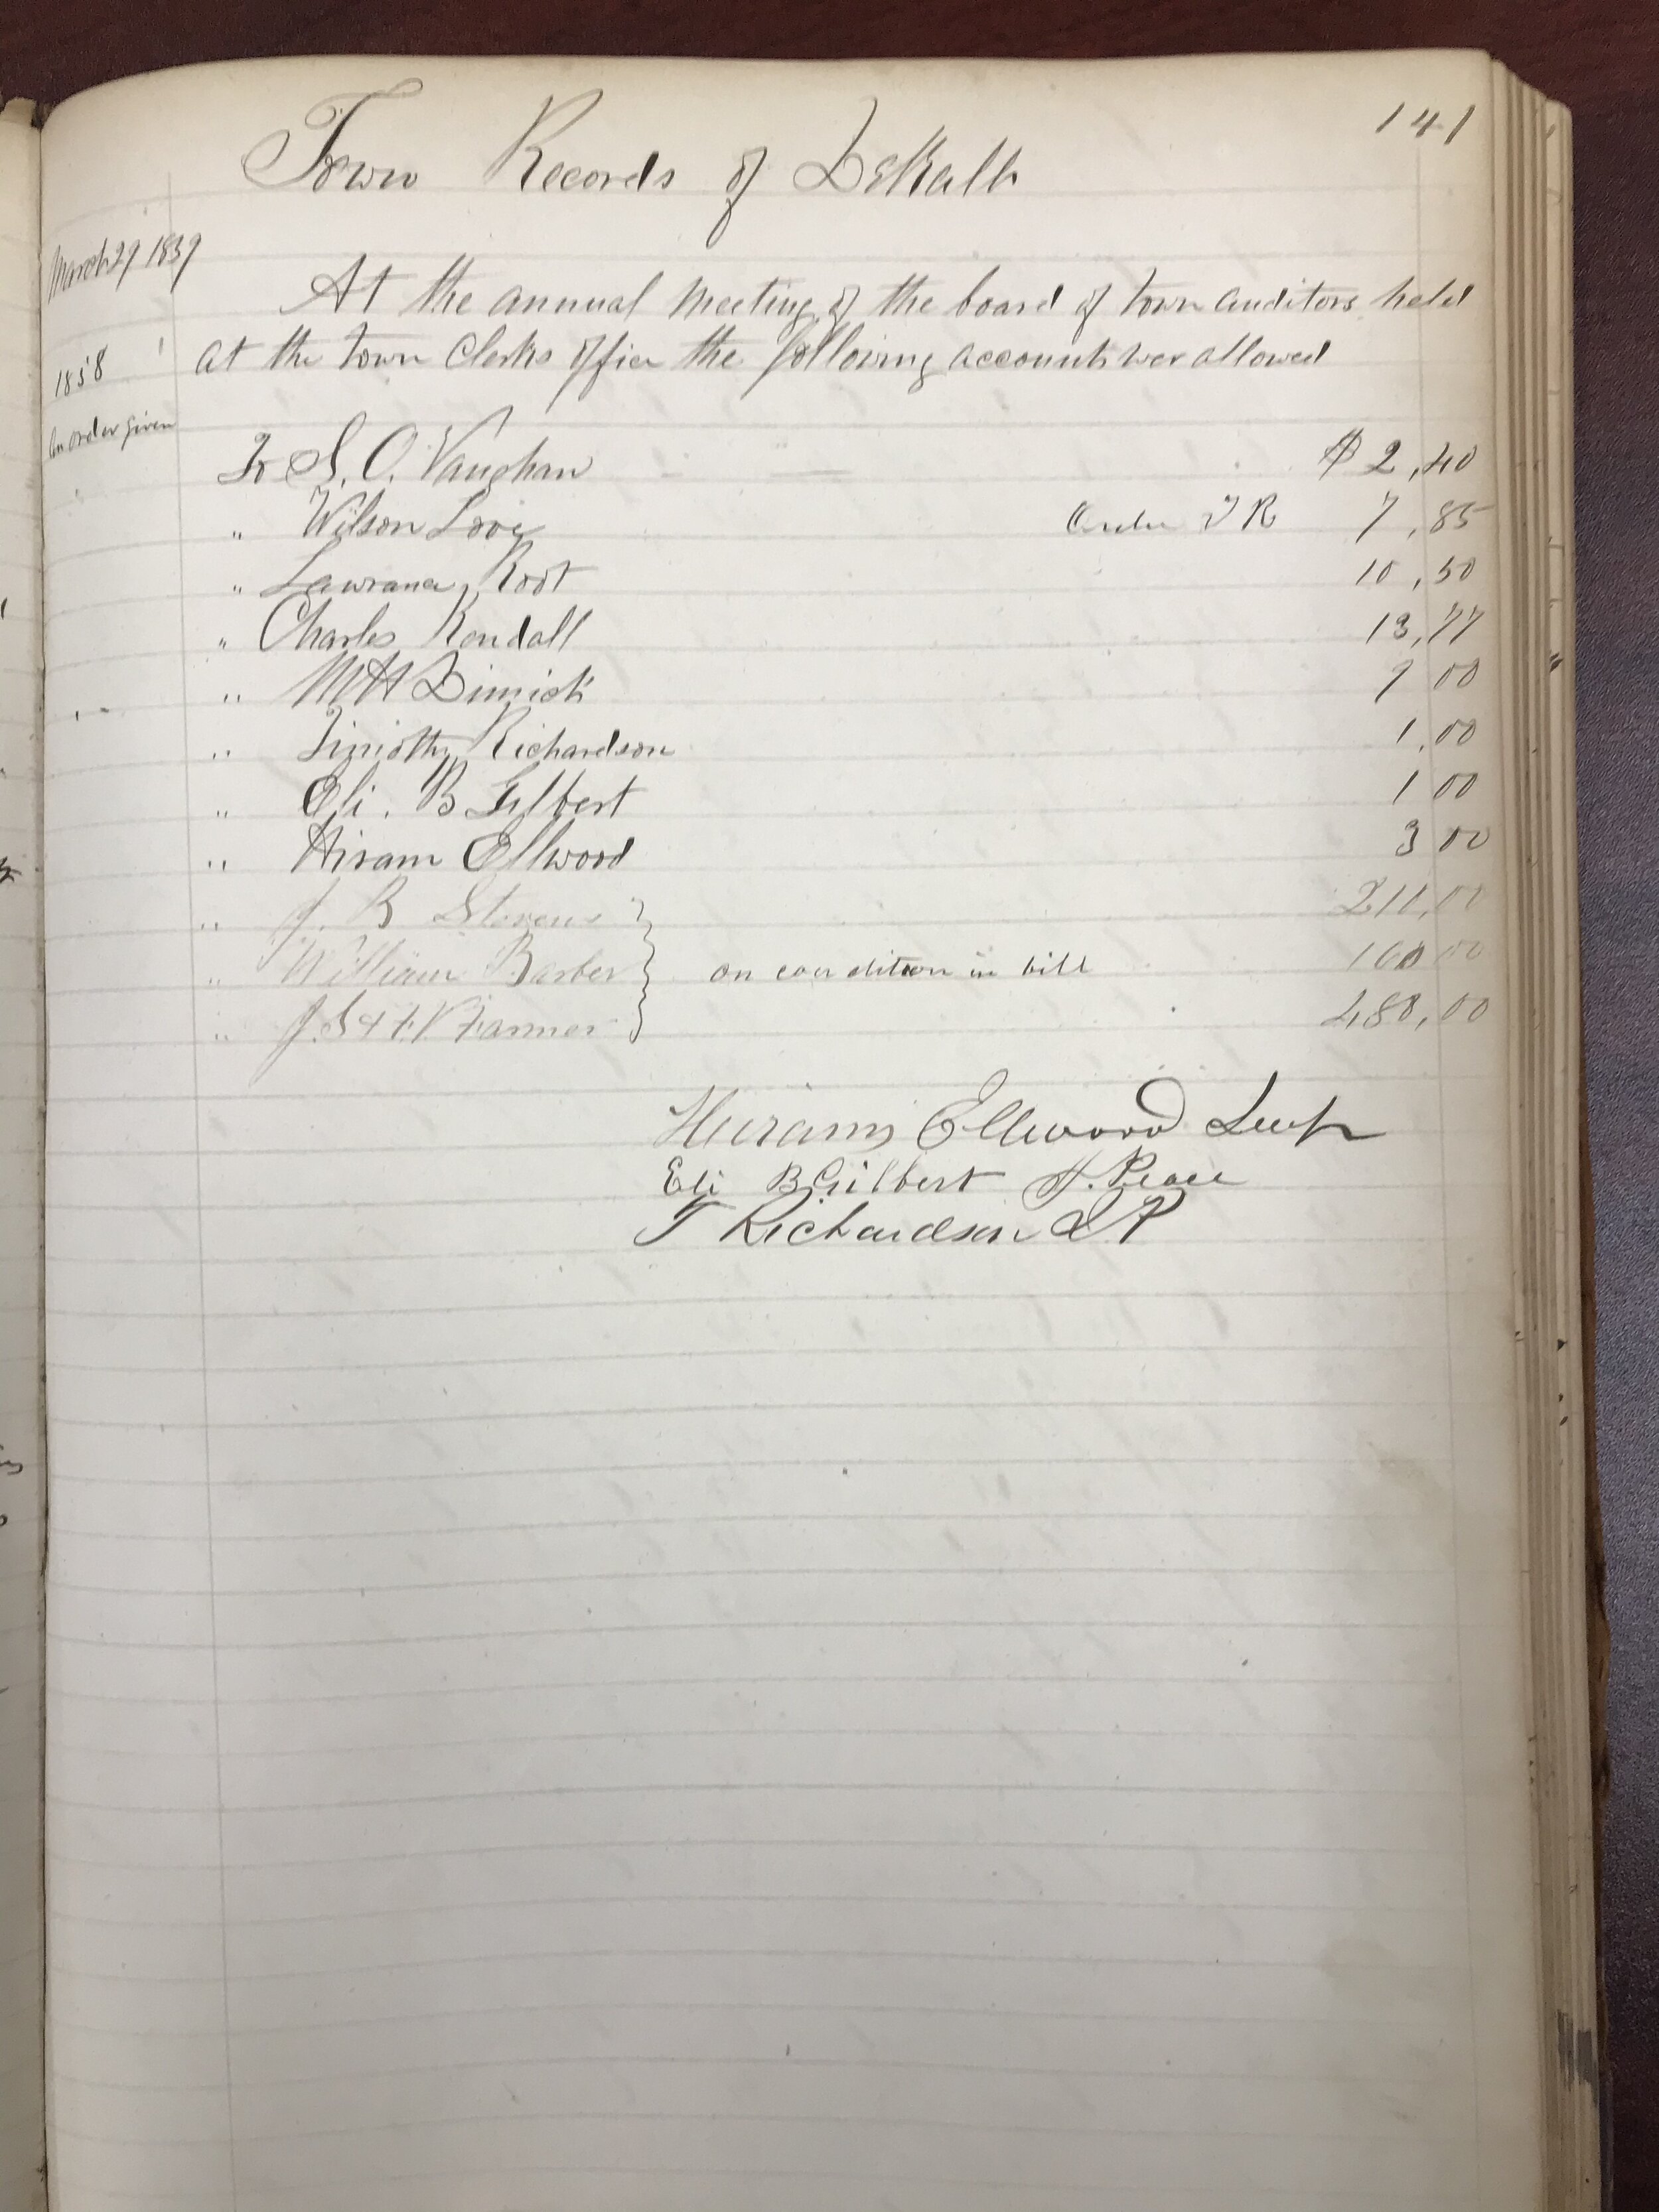 141
Town Records of DeKalb
March 29 1859
At the annual Meeting of the board of town auditors held
at the town Clerks office the following accounts wer allowed
1858
An order given
To S. O. Vaughan $ 2,40
" Wilson Order T R 7,85
" Lawrance Root 10,50
" Charles Kendall 13,77
" M H Dimick 9 00
" Timothy Richardson 1,00
" Eli. B Gilbert 1 00
" Hiram Ellwood 3 00
" J. B Stevens 210,00
" William Barber on condition in bill 160 00
" J. S & F. V Farmer 480,00
Hiram Ellwood Sup
Eli B Gilbert J. Peace
T Richardson J P